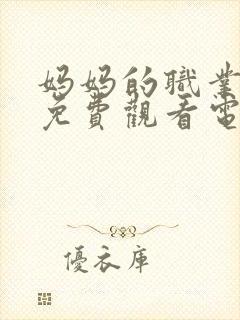 妈妈的職業
免費觀看電
優衣庫